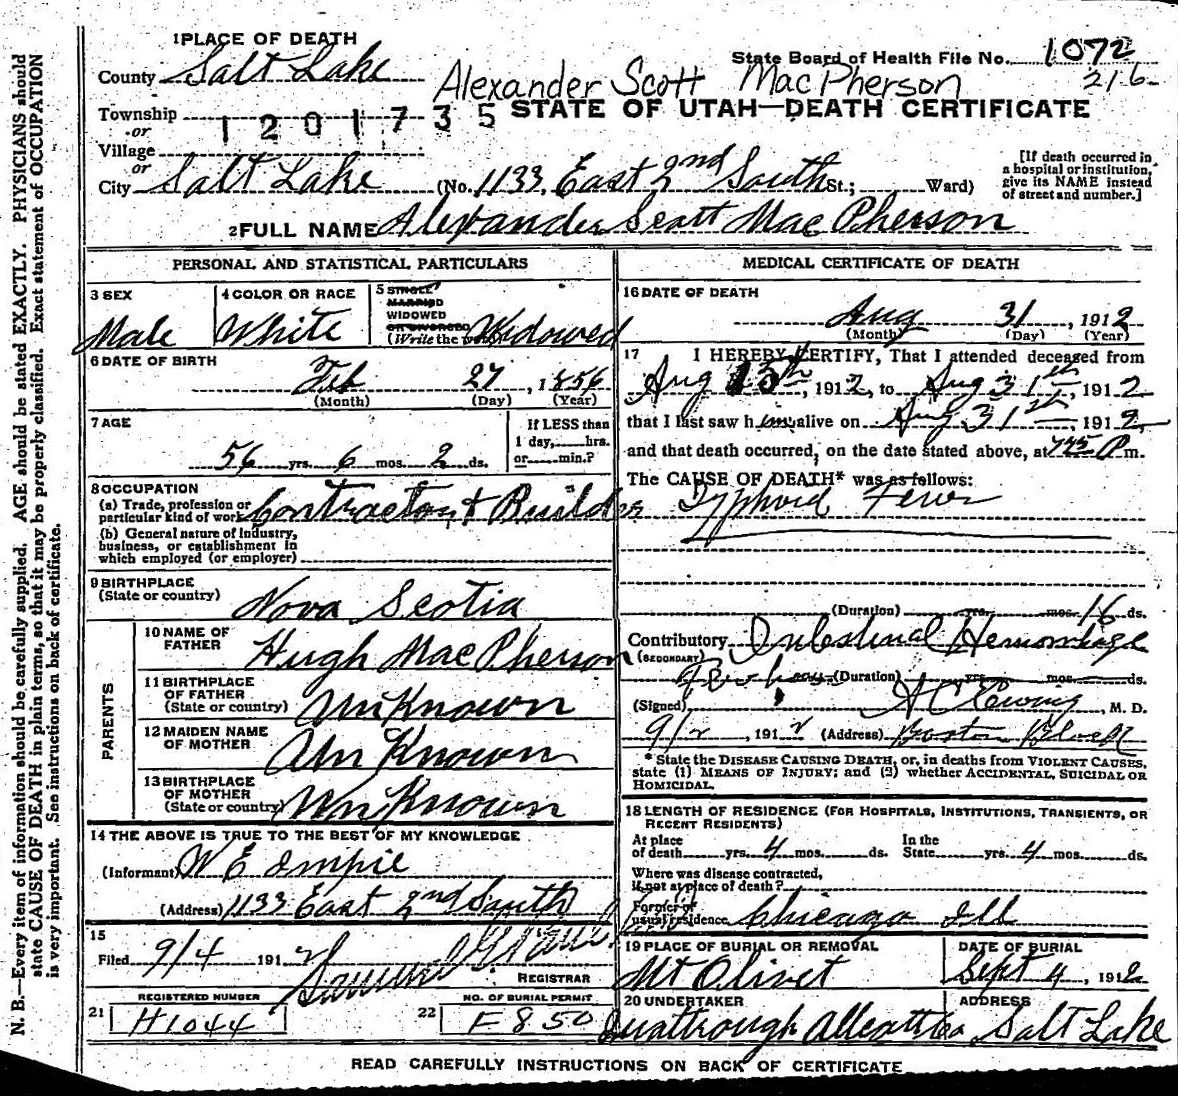 1 PLACE OF DEATH
State Board of Health File No. 1072
County Salt Lake
216
Alexander Scott MacPherson
Township
or
1201735
STATE OF UTAH—DEATH CERTIFICATE
Village
or
City Salt Lake (No. 1133, East 2nd South St.; Ward)
[If death occurred in a hospital or institution, give its NAME instead of street and number.]
2 FULL NAME Alexander Scott MacPherson
PERSONAL AND STATISTICAL PARTICULARS
3 SEX
Male
4 COLOR OR RACE
White
5 SINGLE
MARRIED
WIDOWED
OR DIVORCED
(Write the word) Widowed
6 DATE OF BIRTH
Feb 27, 1856
(Month) (Day) (Year)
7 AGE
56 yrs. 6 mos. 2 ds.
If LESS than
1 day, hrs.
or min.?
8 OCCUPATION
(a) Trade, profession or
particular kind of work Contractor & Builder
(b) General nature of industry,
business, or establishment in
which employed (or employer)
9 BIRTHPLACE
(State or country) Nova Scotia
PARENTS
10 NAME OF
FATHER Hugh MacPherson
11 BIRTHPLACE
OF FATHER
(State or country) UnKnown
12 MAIDEN NAME
OF MOTHER UnKnown
13 BIRTHPLACE
OF MOTHER
(State or country) UnKnown
14 THE ABOVE IS TRUE TO THE BEST OF MY KNOWLEDGE
(Informant) W E
(Address) 1133 East 2nd South
15
Filed 9/4 191 2
REGISTRAR
REGISTERED NUMBER
21 H1044
NO. OF BURIAL PERMIT
22 F850
MEDICAL CERTIFICATE OF DEATH
16 DATE OF DEATH
Aug 31, 1912
(Month) (Day) (Year)
17 I HEREBY CERTIFY, That I attended deceased from
Aug 15th, 1912, to Aug 31th, 1912
that I last saw him alive on Aug 31th, 1912,
and that death occurred, on the date stated above, at 725 P m.
The CAUSE OF DEATH* was as follows:
Typhoid Fever
(Duration) yrs. mos. 16 ds.
Contributory Intestinal Hemorrhage
(SECONDARY)
Few hours (Duration) yrs. mos. ds.
(Signed) , M. D.
9/2, 1912 (Address) Boston Block
* State the DISEASE CAUSING DEATH, or, in deaths from VIOLENT CAUSES,
state (1) MEANS OF INJURY; and (2) whether ACCIDENTAL, SUICIDAL OR
HOMICIDAL.
18 LENGTH OF RESIDENCE (FOR HOSPITALS, INSTITUTIONS, TRANSIENTS, OR
RECENT RESIDENTS)
At place
of death yrs. 4 mos. ds. In the State yrs. 4 mos. ds.
Where was disease contracted,
if not at place of death?
Former or
usual residence Chicago Ill
19 PLACE OF BURIAL OR REMOVAL
Mt Olivet
DATE OF BURIAL
Sept 4, 1912
20 UNDERTAKER
ADDRESS
Salt Lake
READ CAREFULLY INSTRUCTIONS ON BACK OF CERTIFICATE
N. B.—Every item of information should be carefully supplied. AGE should be stated EXACTLY. PHYSICIANS should
state CAUSE OF DEATH in plain terms, so that it may be properly classified. Exact statement of OCCUPATION
is very important. See instructions on back of certificate.